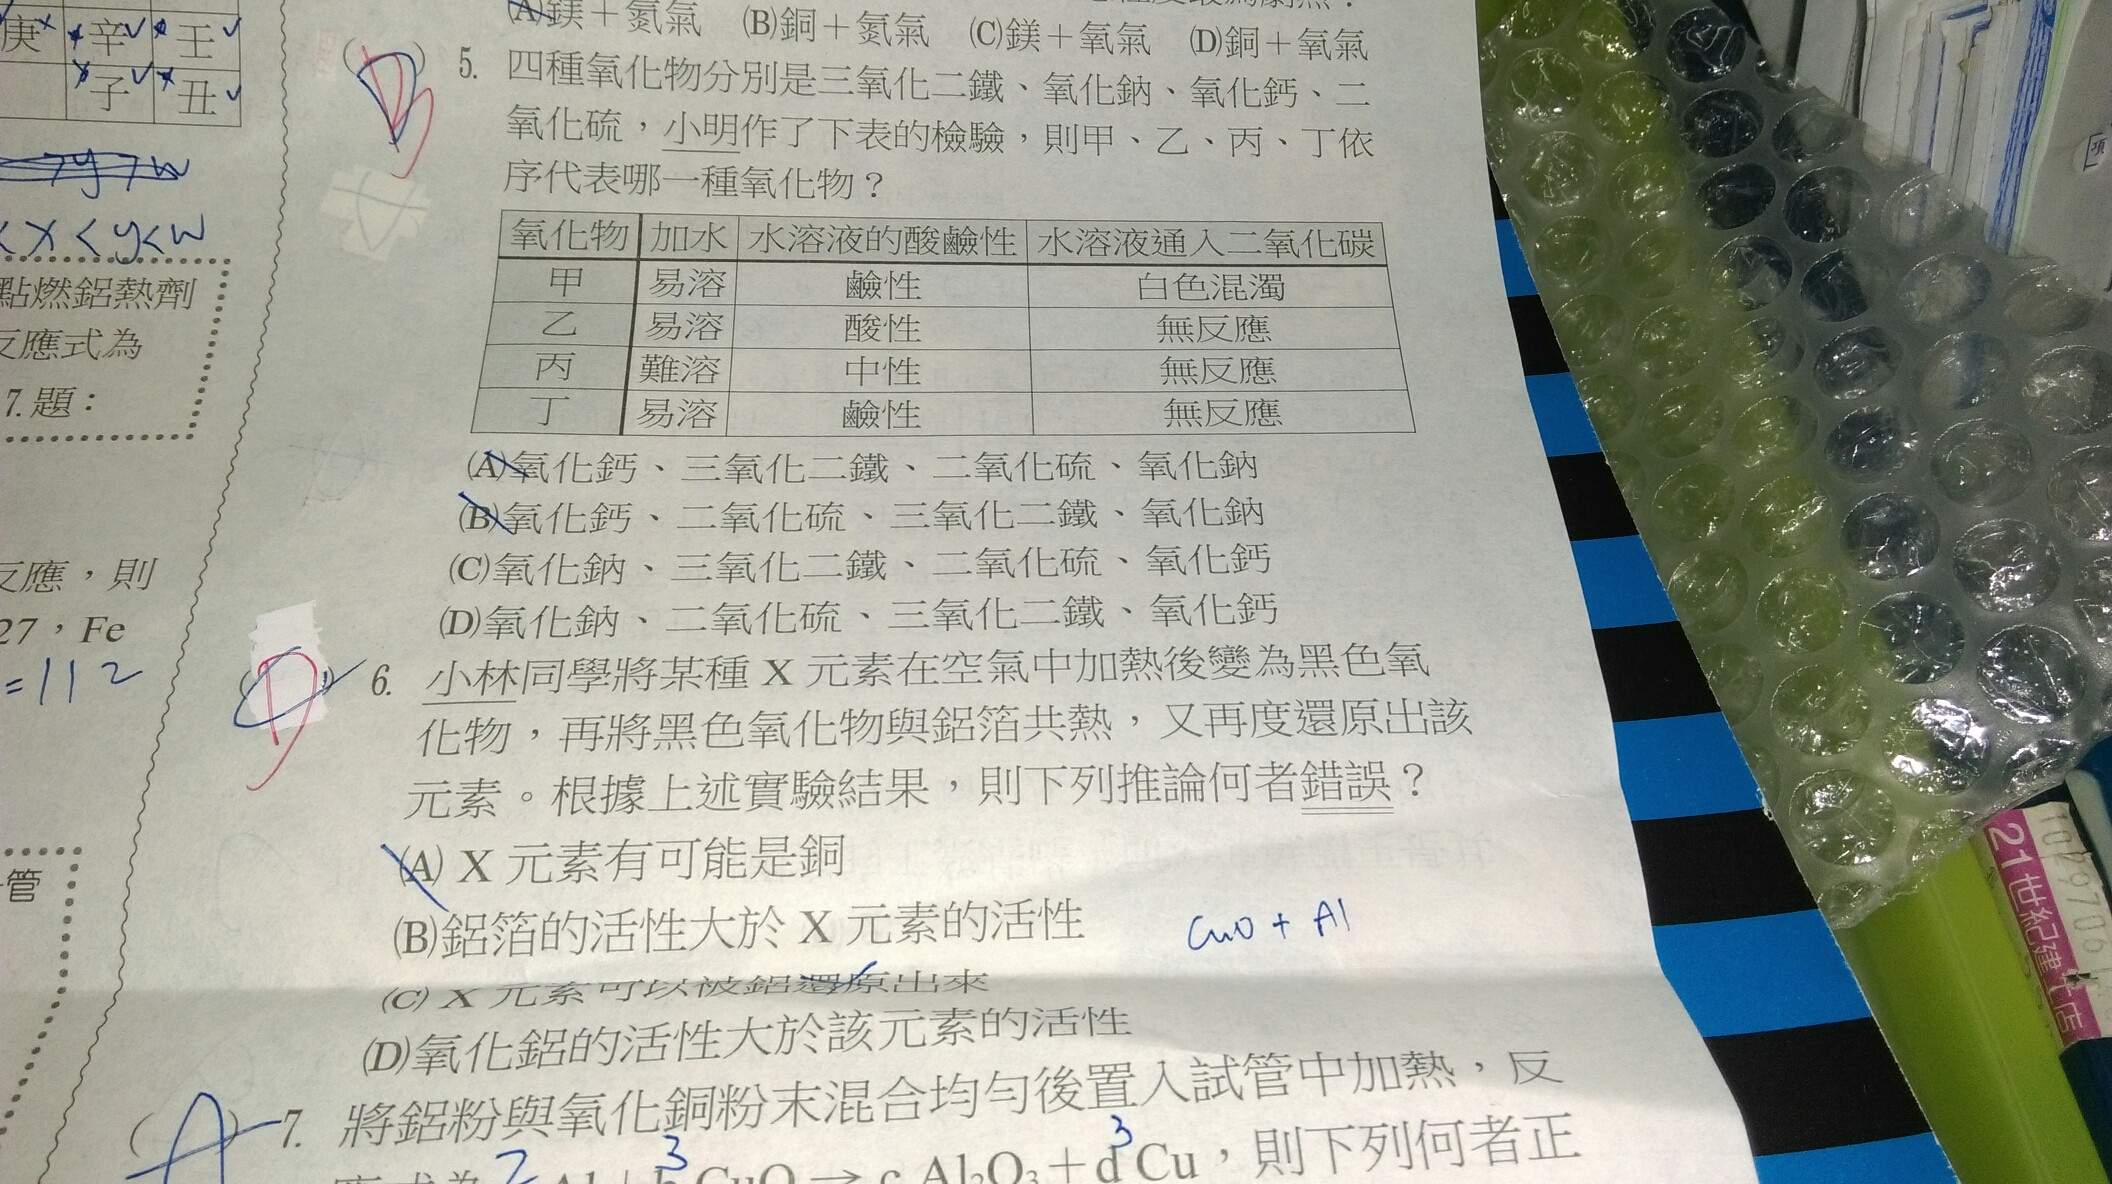 庚 辛 壬
子 丑
< x < y < w
點燃鋁熱劑
反應式為
7.題：
反應，則
27，Fe
=112
管
(A)鎂＋氮氣 (B)銅＋氮氣 (C)鎂＋氧氣 (D)銅＋氧氣
5. 四種氧化物分別是三氧化二鐵、氧化鈉、氧化鈣、二
氧化硫，小明作了下表的檢驗，則甲、乙、丙、丁依
序代表哪一種氧化物？
氧化物 加水 水溶液的酸鹼性 水溶液通入二氧化碳
甲 易溶 鹼性 白色混濁
乙 易溶 酸性 無反應
丙 難溶 中性 無反應
丁 易溶 鹼性 無反應
(A)氧化鈣、三氧化二鐵、二氧化硫、氧化鈉
(B)氧化鈣、二氧化硫、三氧化二鐵、氧化鈉
(C)氧化鈉、三氧化二鐵、二氧化硫、氧化鈣
(D)氧化鈉、二氧化硫、三氧化二鐵、氧化鈣
D 6. 小林同學將某種 X 元素在空氣中加熱後變為黑色氧
化物，再將黑色氧化物與鋁箔共熱，又再度還原出該
元素。根據上述實驗結果，則下列推論何者錯誤？
(A) X 元素有可能是銅
(B)鋁箔的活性大於 X 元素的活性
CuO + Al
(C) X 元素可以被鋁還原出來
(D)氧化鋁的活性大於該元素的活性
(A) 7. 將鋁粉與氧化銅粉末混合均勻後置入試管中加熱，反
應式為 2 Al + b 3 CuO → c Al₂O₃ + d 3 Cu，則下列何者正
1029706
21世紀建